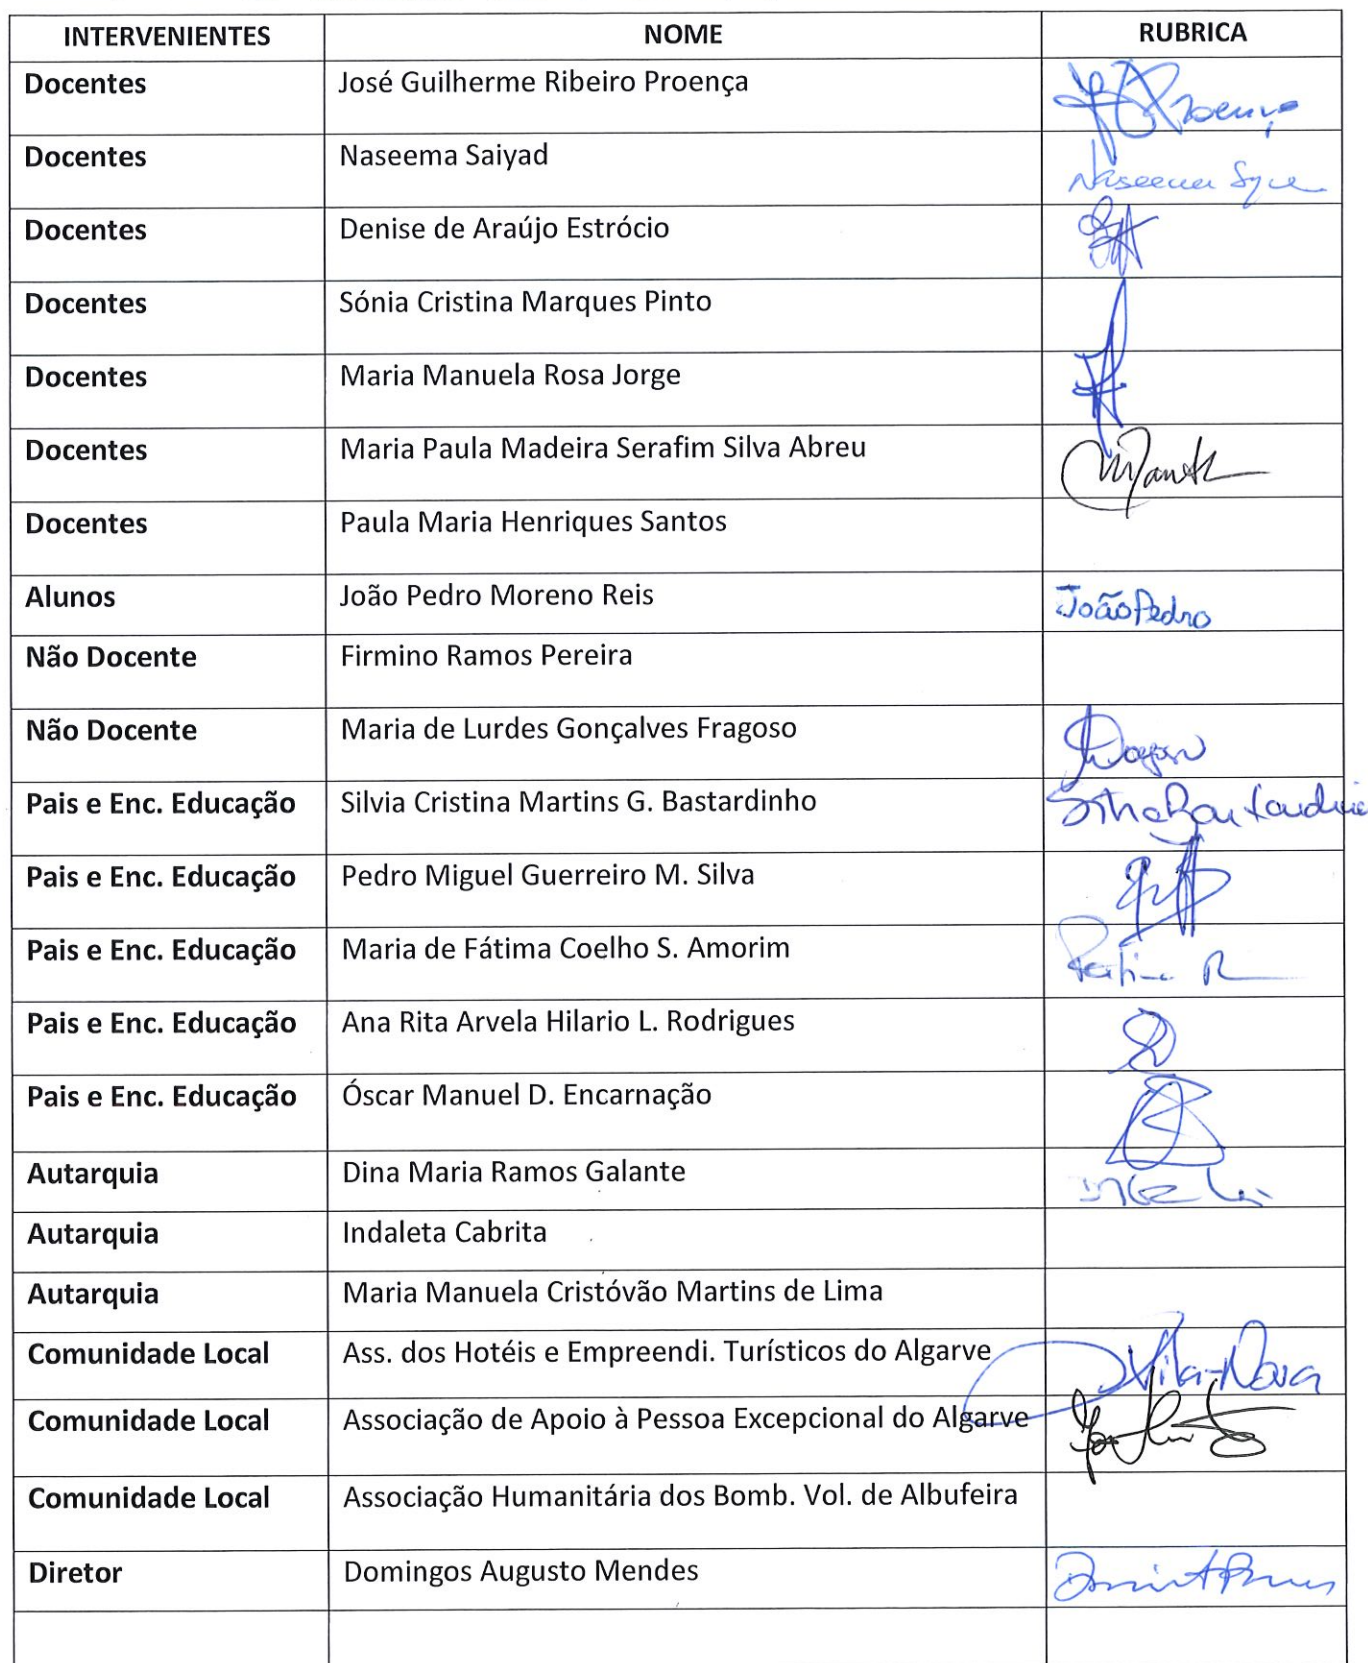 INTERVENIENTES NOME RUBRICA
Docentes José Guilherme Ribeiro Proença Proença
Docentes Naseema Saiyad Naseema
Docentes Denise de Araújo Estrócio
Docentes Sónia Cristina Marques Pinto
Docentes Maria Manuela Rosa Jorge
Docentes Maria Paula Madeira Serafim Silva Abreu
Docentes Paula Maria Henriques Santos
Alunos João Pedro Moreno Reis João Pedro
Não Docente Firmino Ramos Pereira
Não Docente Maria de Lurdes Gonçalves Fragoso
Pais e Enc. Educação Silvia Cristina Martins G. Bastardinho
Pais e Enc. Educação Pedro Miguel Guerreiro M. Silva
Pais e Enc. Educação Maria de Fátima Coelho S. Amorim
Pais e Enc. Educação Ana Rita Arvela Hilario L. Rodrigues
Pais e Enc. Educação Óscar Manuel D. Encarnação
Autarquia Dina Maria Ramos Galante
Autarquia Indaleta Cabrita
Autarquia Maria Manuela Cristóvão Martins de Lima
Comunidade Local Ass. dos Hotéis e Empreendi. Turísticos do Algarve Vila-Nova
Comunidade Local Associação de Apoio à Pessoa Excepcional do Algarve
Comunidade Local Associação Humanitária dos Bomb. Vol. de Albufeira
Diretor Domingos Augusto Mendes